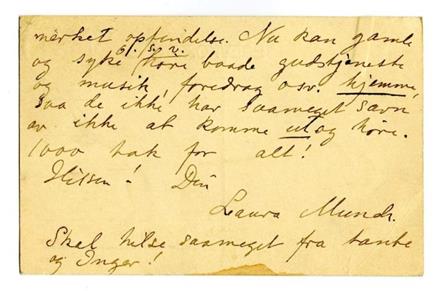 mærket opfindelse. Nu kan gamle
og syke høre baade gudstjeneste
og musik, foredrag osv. hjemme,
saa de ikke har saameget savn
av ikke at komme ut og høre.
1000 tak for alt!
Hilsen! Din
Laura Munch.
Skal hilse saameget fra tante
og Inger!